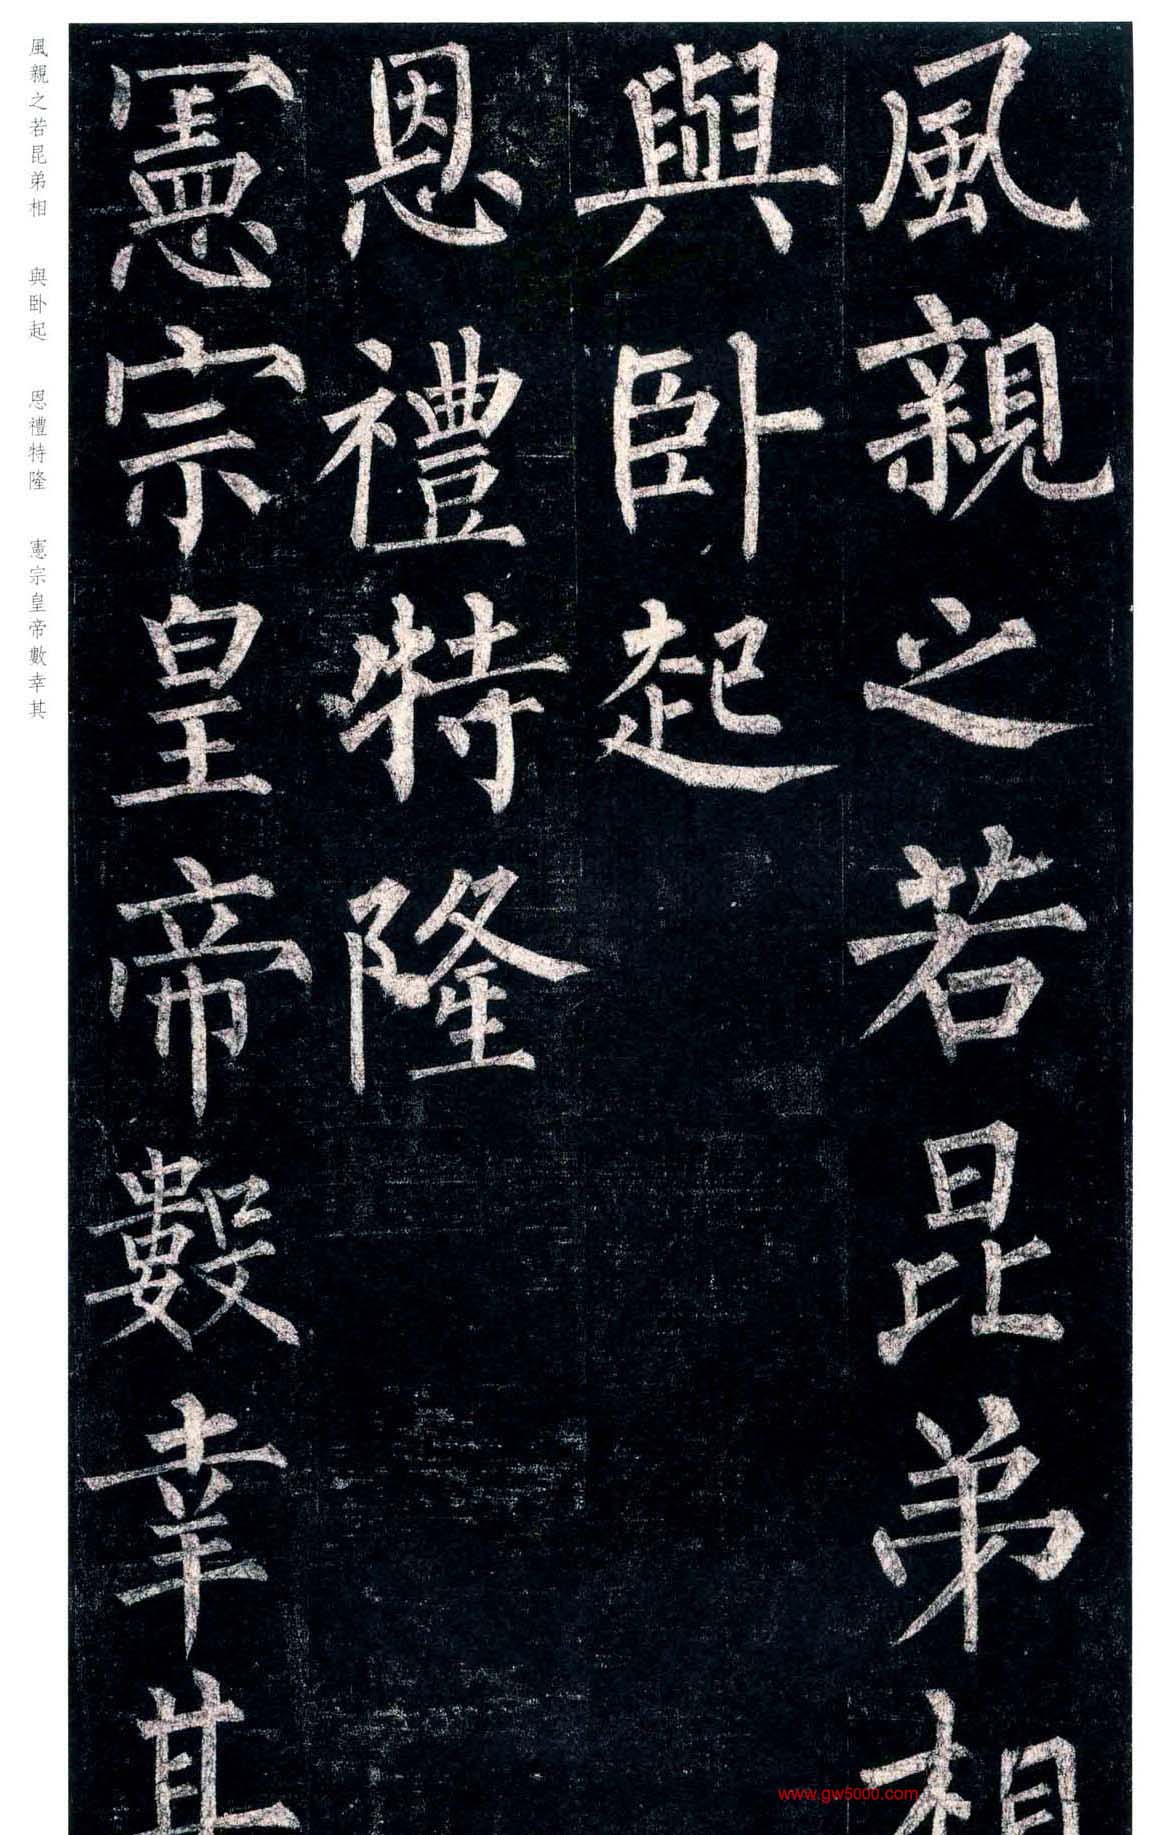 風親之若昆弟相
與卧起
恩禮特隆
憲宗皇帝數幸其
風親之若昆弟相 與卧起 恩禮特隆 憲宗皇帝數幸其
www.gw5000.com